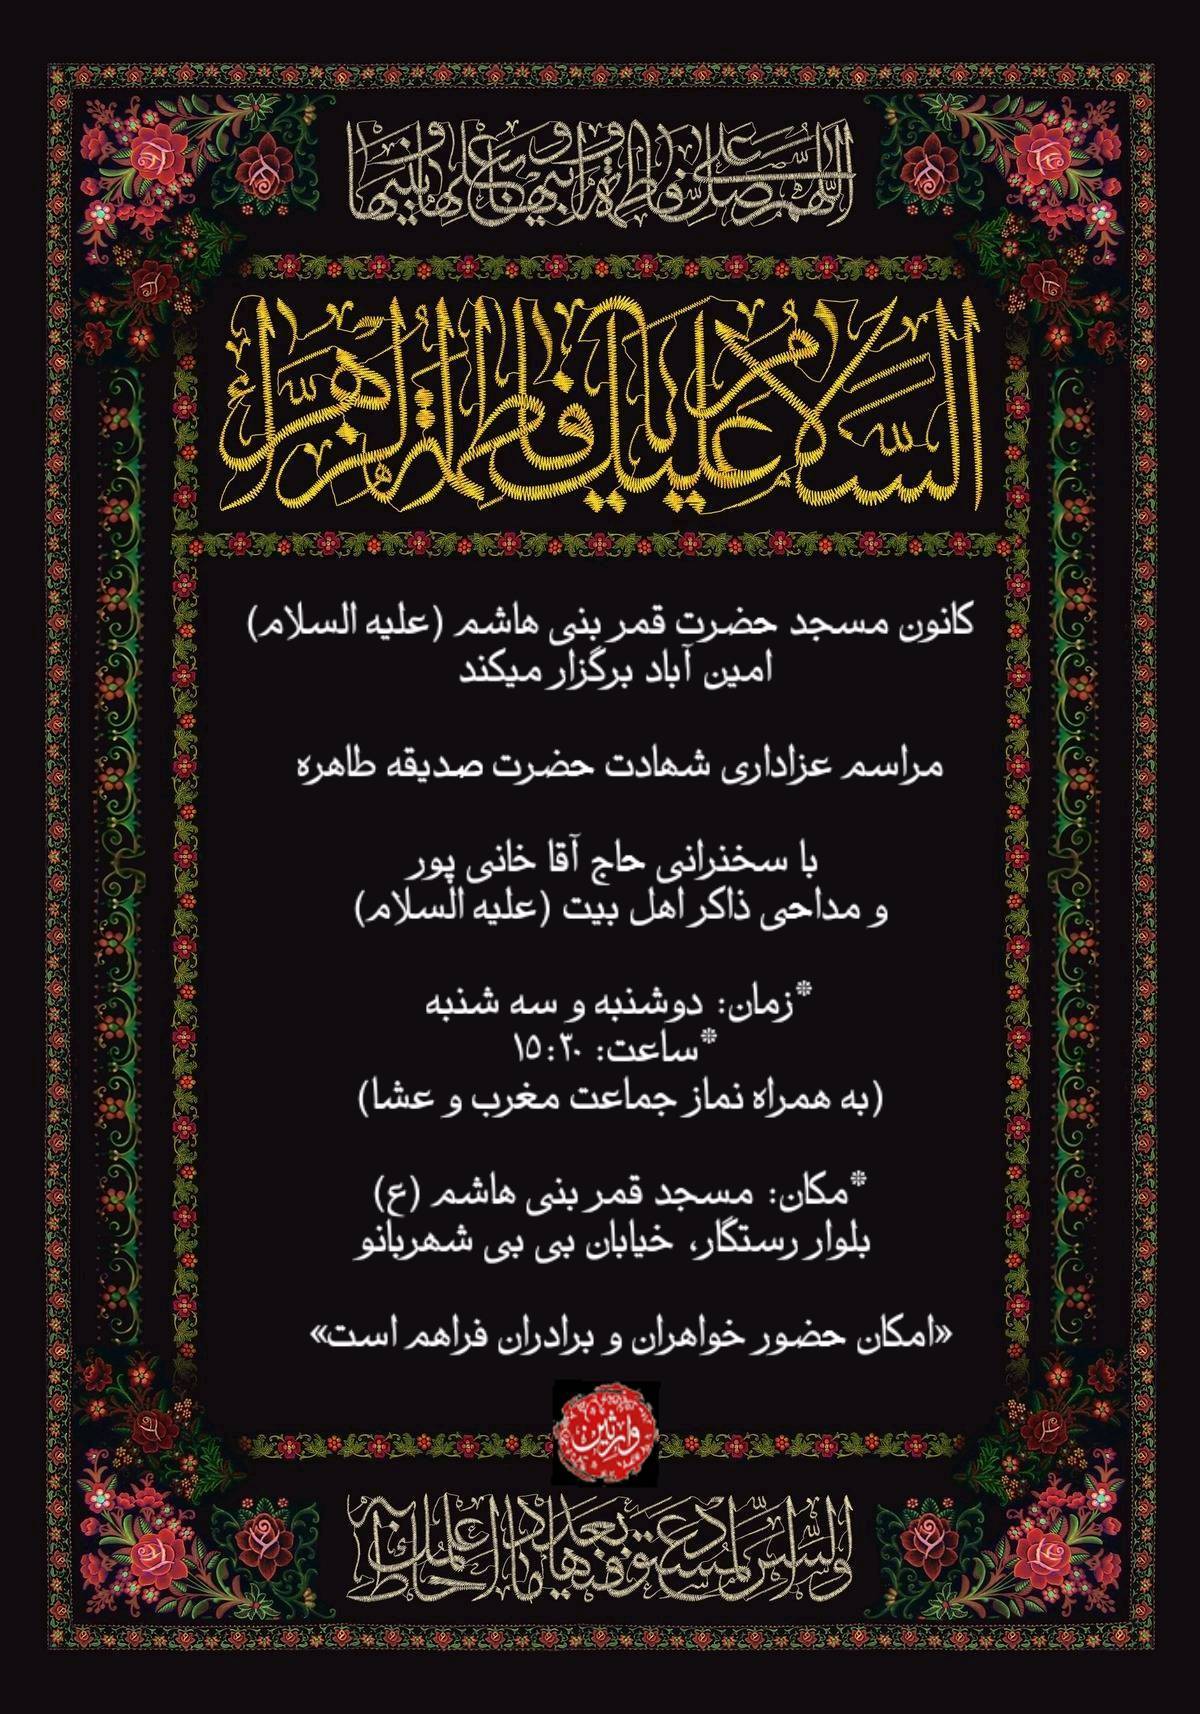 اللهم صل علی فاطمة و ابیها و بعلها و بنیها
السلام علیک یا فاطمة الزهراء
کانون مسجد حضرت قمر بنی هاشم (علیه السلام)
امین آباد برگزار میکند
مراسم عزاداری شهادت حضرت صدیقه طاهره
با سخنرانی حاج آقا خانی پور
و مداحی ذاکر اهل بیت (علیه السلام)
*زمان: دوشنبه و سه شنبه
*ساعت: ۱۵:۳۰
(به همراه نماز جماعت مغرب و عشا)
*مکان: مسجد قمر بنی هاشم (ع)
بلوار رستگار، خیابان بی بی شهربانو
«امکان حضور خواهران و برادران فراهم است»
وارثین
والسر المستودع فیها بعدد ما احاط به علمک